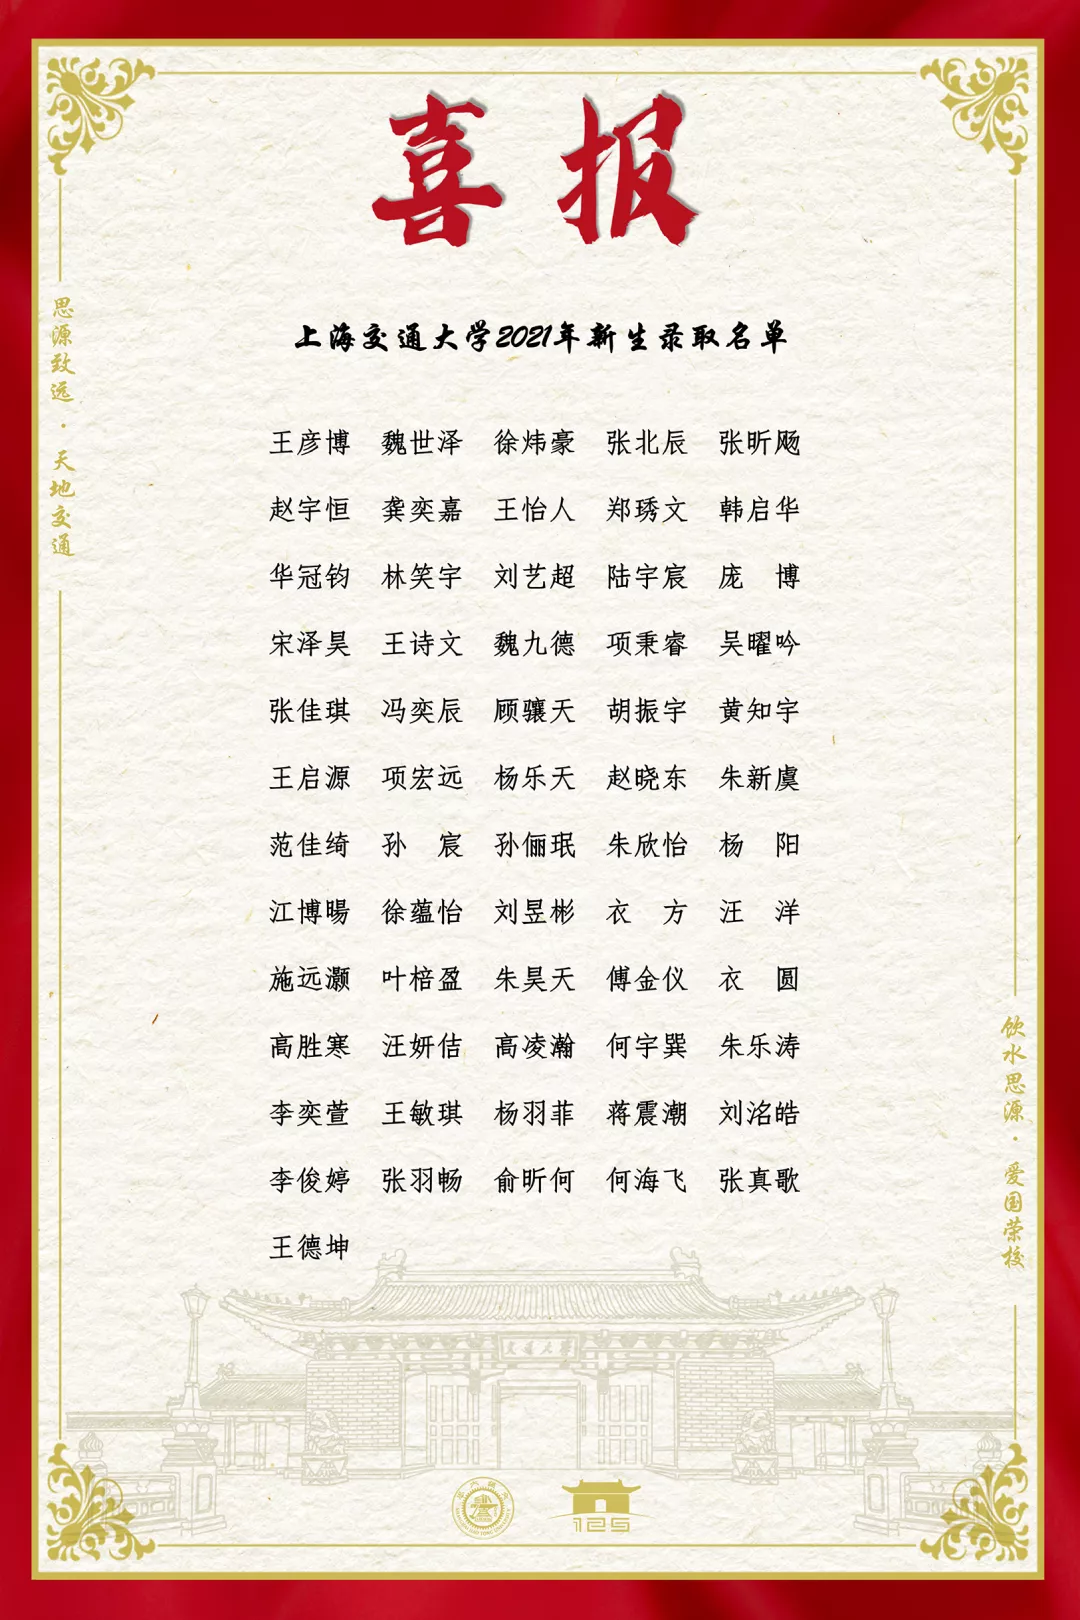 喜报
思源致远·天地交通
上海交通大学2021年新生录取名单
王彦博 魏世泽 徐炜豪 张北辰 张昕飏
赵宇恒 龚奕嘉 王怡人 郑琇文 韩启华
华冠钧 林笑宇 刘艺超 陆宇宸 庞 博
宋泽昊 王诗文 魏九德 项秉睿 吴曜吟
张佳琪 冯奕辰 顾骧天 胡振宇 黄知宇
王启源 项宏远 杨乐天 赵晓东 朱新虞
范佳绮 孙 宸 孙俪珉 朱欣怡 杨 阳
江博暘 徐蕴怡 刘昱彬 衣 方 汪 洋
施远灏 叶棓盈 朱昊天 傅金仪 衣 圆
高胜寒 汪妍佶 高凌瀚 何宇巽 朱乐涛
李奕萱 王敏琪 杨羽菲 蒋震潮 刘洺皓
李俊婷 张羽畅 俞昕何 何海飞 张真歌
王德坤
饮水思源·爱国荣校
交通大學
125